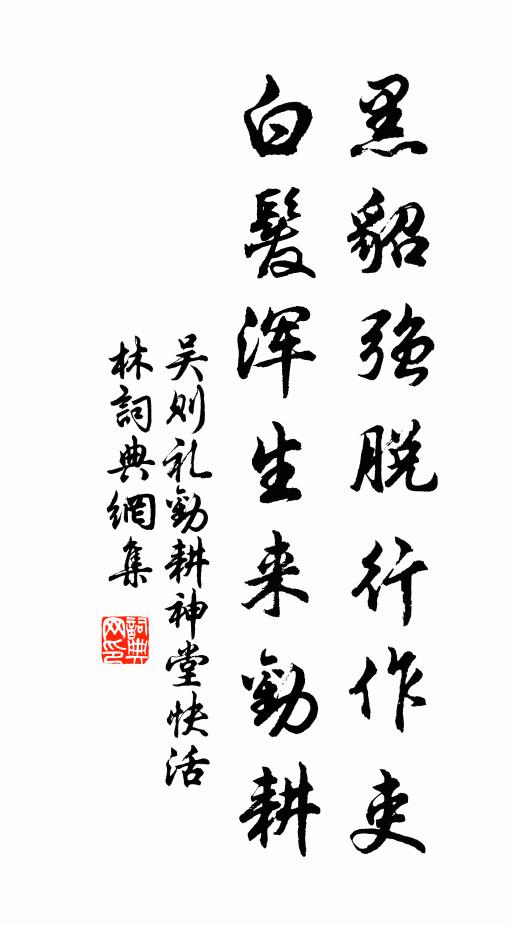 黑貂强脱行作吏
白髮浑生来勸耕
吴则礼勸耕神堂快活
林詞典網集
詞典网印